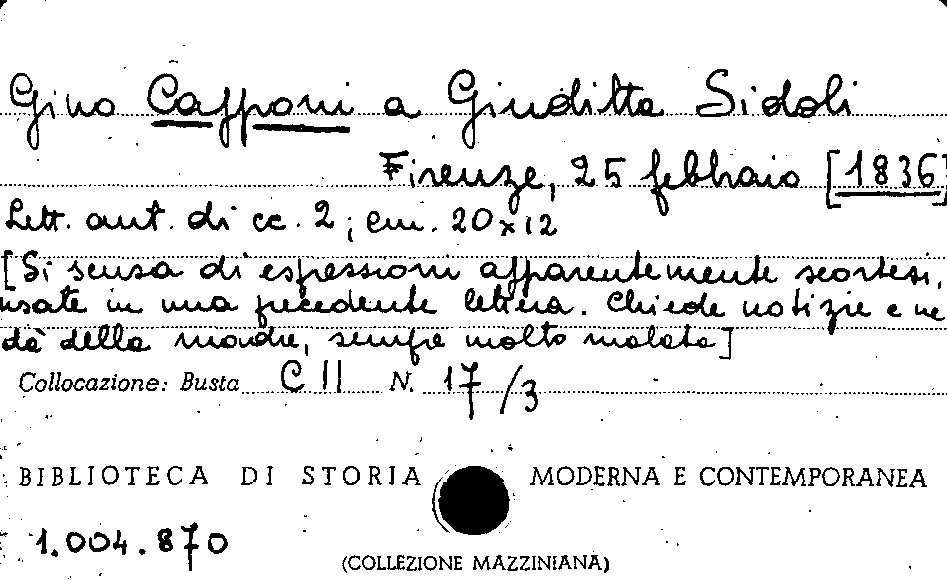 Gino Capponi a Giuditta Sidoli
Firenze, 25 febbraio [1836]
Lett. aut. di cc. 2; cm. 20x12
[Si scusa di espressioni apparentemente scortesi,
usate in una precedente lettera. Chiede notizie e ne
dà della madre, sempre molto malata]
Collocazione: Busta C II N. 17/3
BIBLIOTECA DI STORIA MODERNA E CONTEMPORANEA
1.004.870
(COLLEZIONE MAZZINIANA)